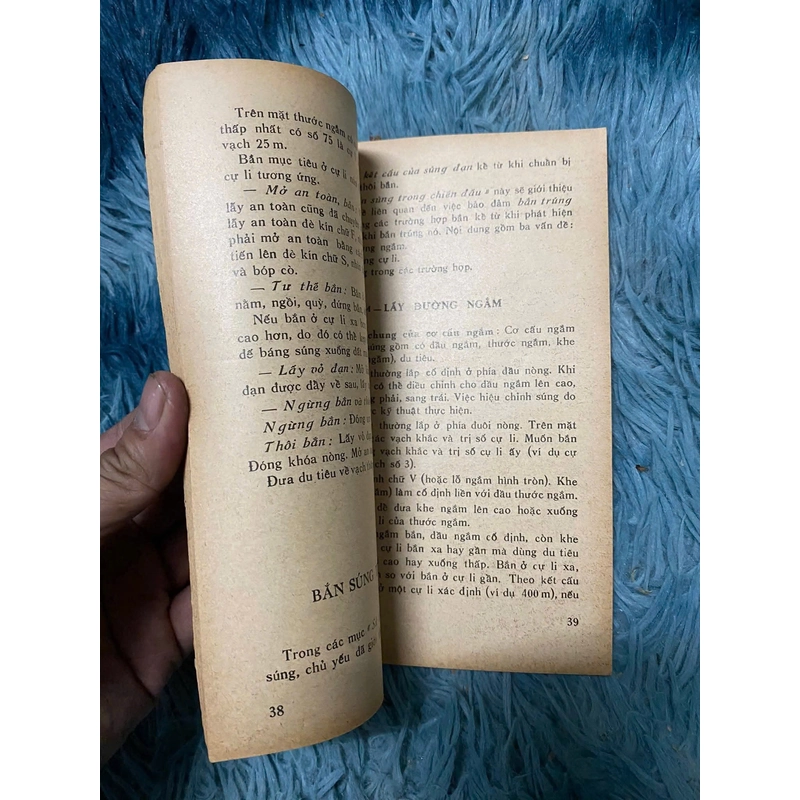 Trên mặt thước ngắm
thấp nhất có số 75 là cự
vạch 25 m.
Bắn mục tiêu ở cự li
cự li tương ứng.
— Mở an toàn, bắn
lẫy an toàn cũng đã chuyển
lẫy an toàn đè kín chữ F,
phải mở an toàn bằng
tiến lên đè kín chữ S,
và bóp cò.
— Tư thế bắn: Bắn
nằm, ngồi, quỳ, đứng bắn
Nếu bắn ở cự li xa
cao hơn, do đó có thể
đế báng súng xuống đất
— Lấy vỏ đạn: Mở
đạn được đầy về sau, lấy
— Ngừng bắn và thôi
Ngừng bắn: Đóng
Thôi bắn: Lấy vỏ
Đóng khóa nòng. Mở an
Đưa du tiêu về vạch
BẮN SÚNG
Trong các mục «
súng, chủ yếu đã giới
38
kết cấu của súng đạn kè từ khi chuẩn bị
khôi bắn.
súng trong chiến đấu » này sẽ giới thiệu
liên quan đến việc bảo đảm bắn trúng
các trường hợp bắn kè từ khi phát hiện
khi bắn trúng nó. Nội dung gồm ba vấn đề:
ngắm.
cự li.
trong các trường hợp.
— LẤY ĐƯỜNG NGẮM
chung của cơ cấu ngắm: Cơ cấu ngắm
súng gồm có đầu ngắm, thước ngắm, khe
ngắm), du tiêu.
thường lắp cố định ở phía đầu nòng. Khi
có thể điều chỉnh cho đầu ngắm lên cao,
phải, sang trái. Việc hiệu chỉnh súng do
kỹ thuật thực hiện.
thường lắp ở phía đuôi nòng. Trên mặt
vạch khắc và trị số cự li. Muốn bắn
vạch khắc và trị số cự li ấy (ví dụ cự
số 3).
hình chữ V (hoặc lỗ ngắm hình tròn). Khe
ngắm) làm cố định liền với đầu thước ngắm.
để đưa khe ngắm lên cao hoặc xuống
li của thước ngắm.
ngắm bắn, đầu ngắm cố định, còn khe
cự li bắn xa hay gần mà dùng du tiêu
cao hay xuống thấp. Bắn ở cự li xa,
so với bắn ở cự li gần. Theo kết cấu
ở một cự li xác định (ví dụ 400 m), nếu
39